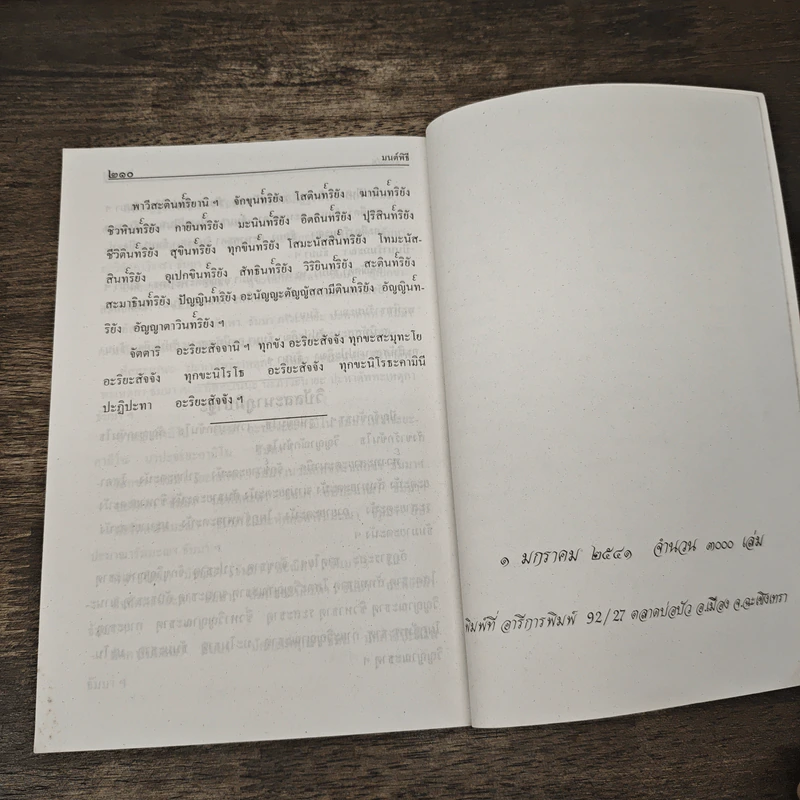 ๒๑๐
มนต์พิธี
พาวีสะตินท์ริยานิ ฯ จักขุนท์ริยัง โสตินท์ริยัง ฆานินท์ริยัง
ชิวหินท์ริยัง กายินท์ริยัง มะนินท์ริยัง อิตถินท์ริยัง ปุริสินท์ริยัง
ชีวิตินท์ริยัง สุขินท์ริยัง ทุกขินท์ริยัง โสมะนัสสินท์ริยัง โทมะนัส-
สินท์ริยัง อุเปกขินท์ริยัง สัทธินท์ริยัง วิริยินท์ริยัง สะตินท์ริยัง
สะมาธินท์ริยัง ปัญญินท์ริยัง อะนัญญะตัญญัสสามีตินท์ริยัง อัญญินท์-
ริยัง อัญญาตาวินท์ริยัง ฯ
จัตตาริ อะริยะสัจจานิ ฯ ทุกขัง อะริยะสัจจัง ทุกขะสะมุทะโย
อะริยะสัจจัง ทุกขะนิโรโธ อะริยะสัจจัง ทุกขะนิโรธะคามินี
ปะฏิปะทา อะริยะสัจจัง ฯ
๑ มกราคม ๒๕๔๑ จำนวน ๓๐๐๐ เล่ม
พิมพ์ที่ อารีการพิมพ์ 92/27 ตลาดบ่อบัว อ.เมือง จ.ฉะเชิงเทรา